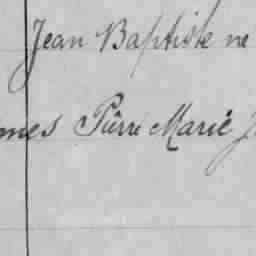 Jean Baptiste ne
mes Pierre Marie